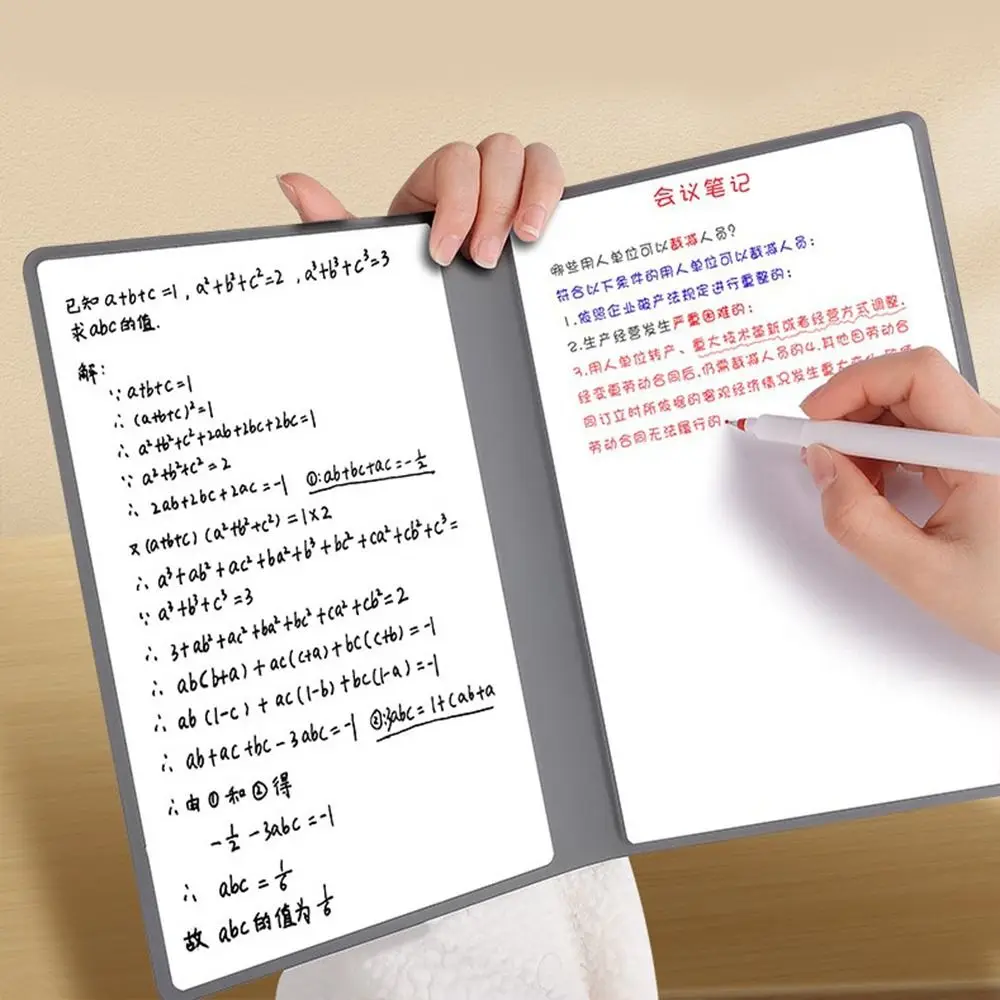 已知 a+b+c=1, a²+b²+c²=2, a³+b³+c³=3
求abc的值.
解:
∵ a+b+c=1
∴ (a+b+c)²=1
∴ a²+b²+c²+2ab+2bc+2bc=1
∵ a²+b²+c²=2
∴ 2ab+2bc+2ac=-1 ①:ab+bc+ac=-½
×(a+b+c)(a²+b²+c²)=1×2
∴ a³+ab²+ac²+ba²+b³+bc²+ca²+cb²+c³=
∵ a³+b³+c³=3
∴ 3+ab²+ac²+ba²+bc²+ca²+cb²=2
∴ ab(b+a)+ac(c+a)+bc(c+b)=-1
∴ ab(1-c)+ac(1-b)+bc(1-a)=-1
∴ ab+ac+bc-3abc=-1 ②:3abc=1+(ab+a
∴ 由①和②得
-½-3abc=-1
∴ abc=⅙
故 abc的值为⅙
会议笔记
哪些用人单位可以裁减人员?
符合以下条件的用人单位可以裁减人员:
1.依照企业破产法规定进行重整的:
2.生产经营发生严重困难的:
3.用人单位转产、重大技术革新或者经营方式调整.
经变更劳动合同后,仍需裁减人员的4.其他因劳动合
同订立时所依据的客观经济情况发生重大变化
劳动合同无法履行的